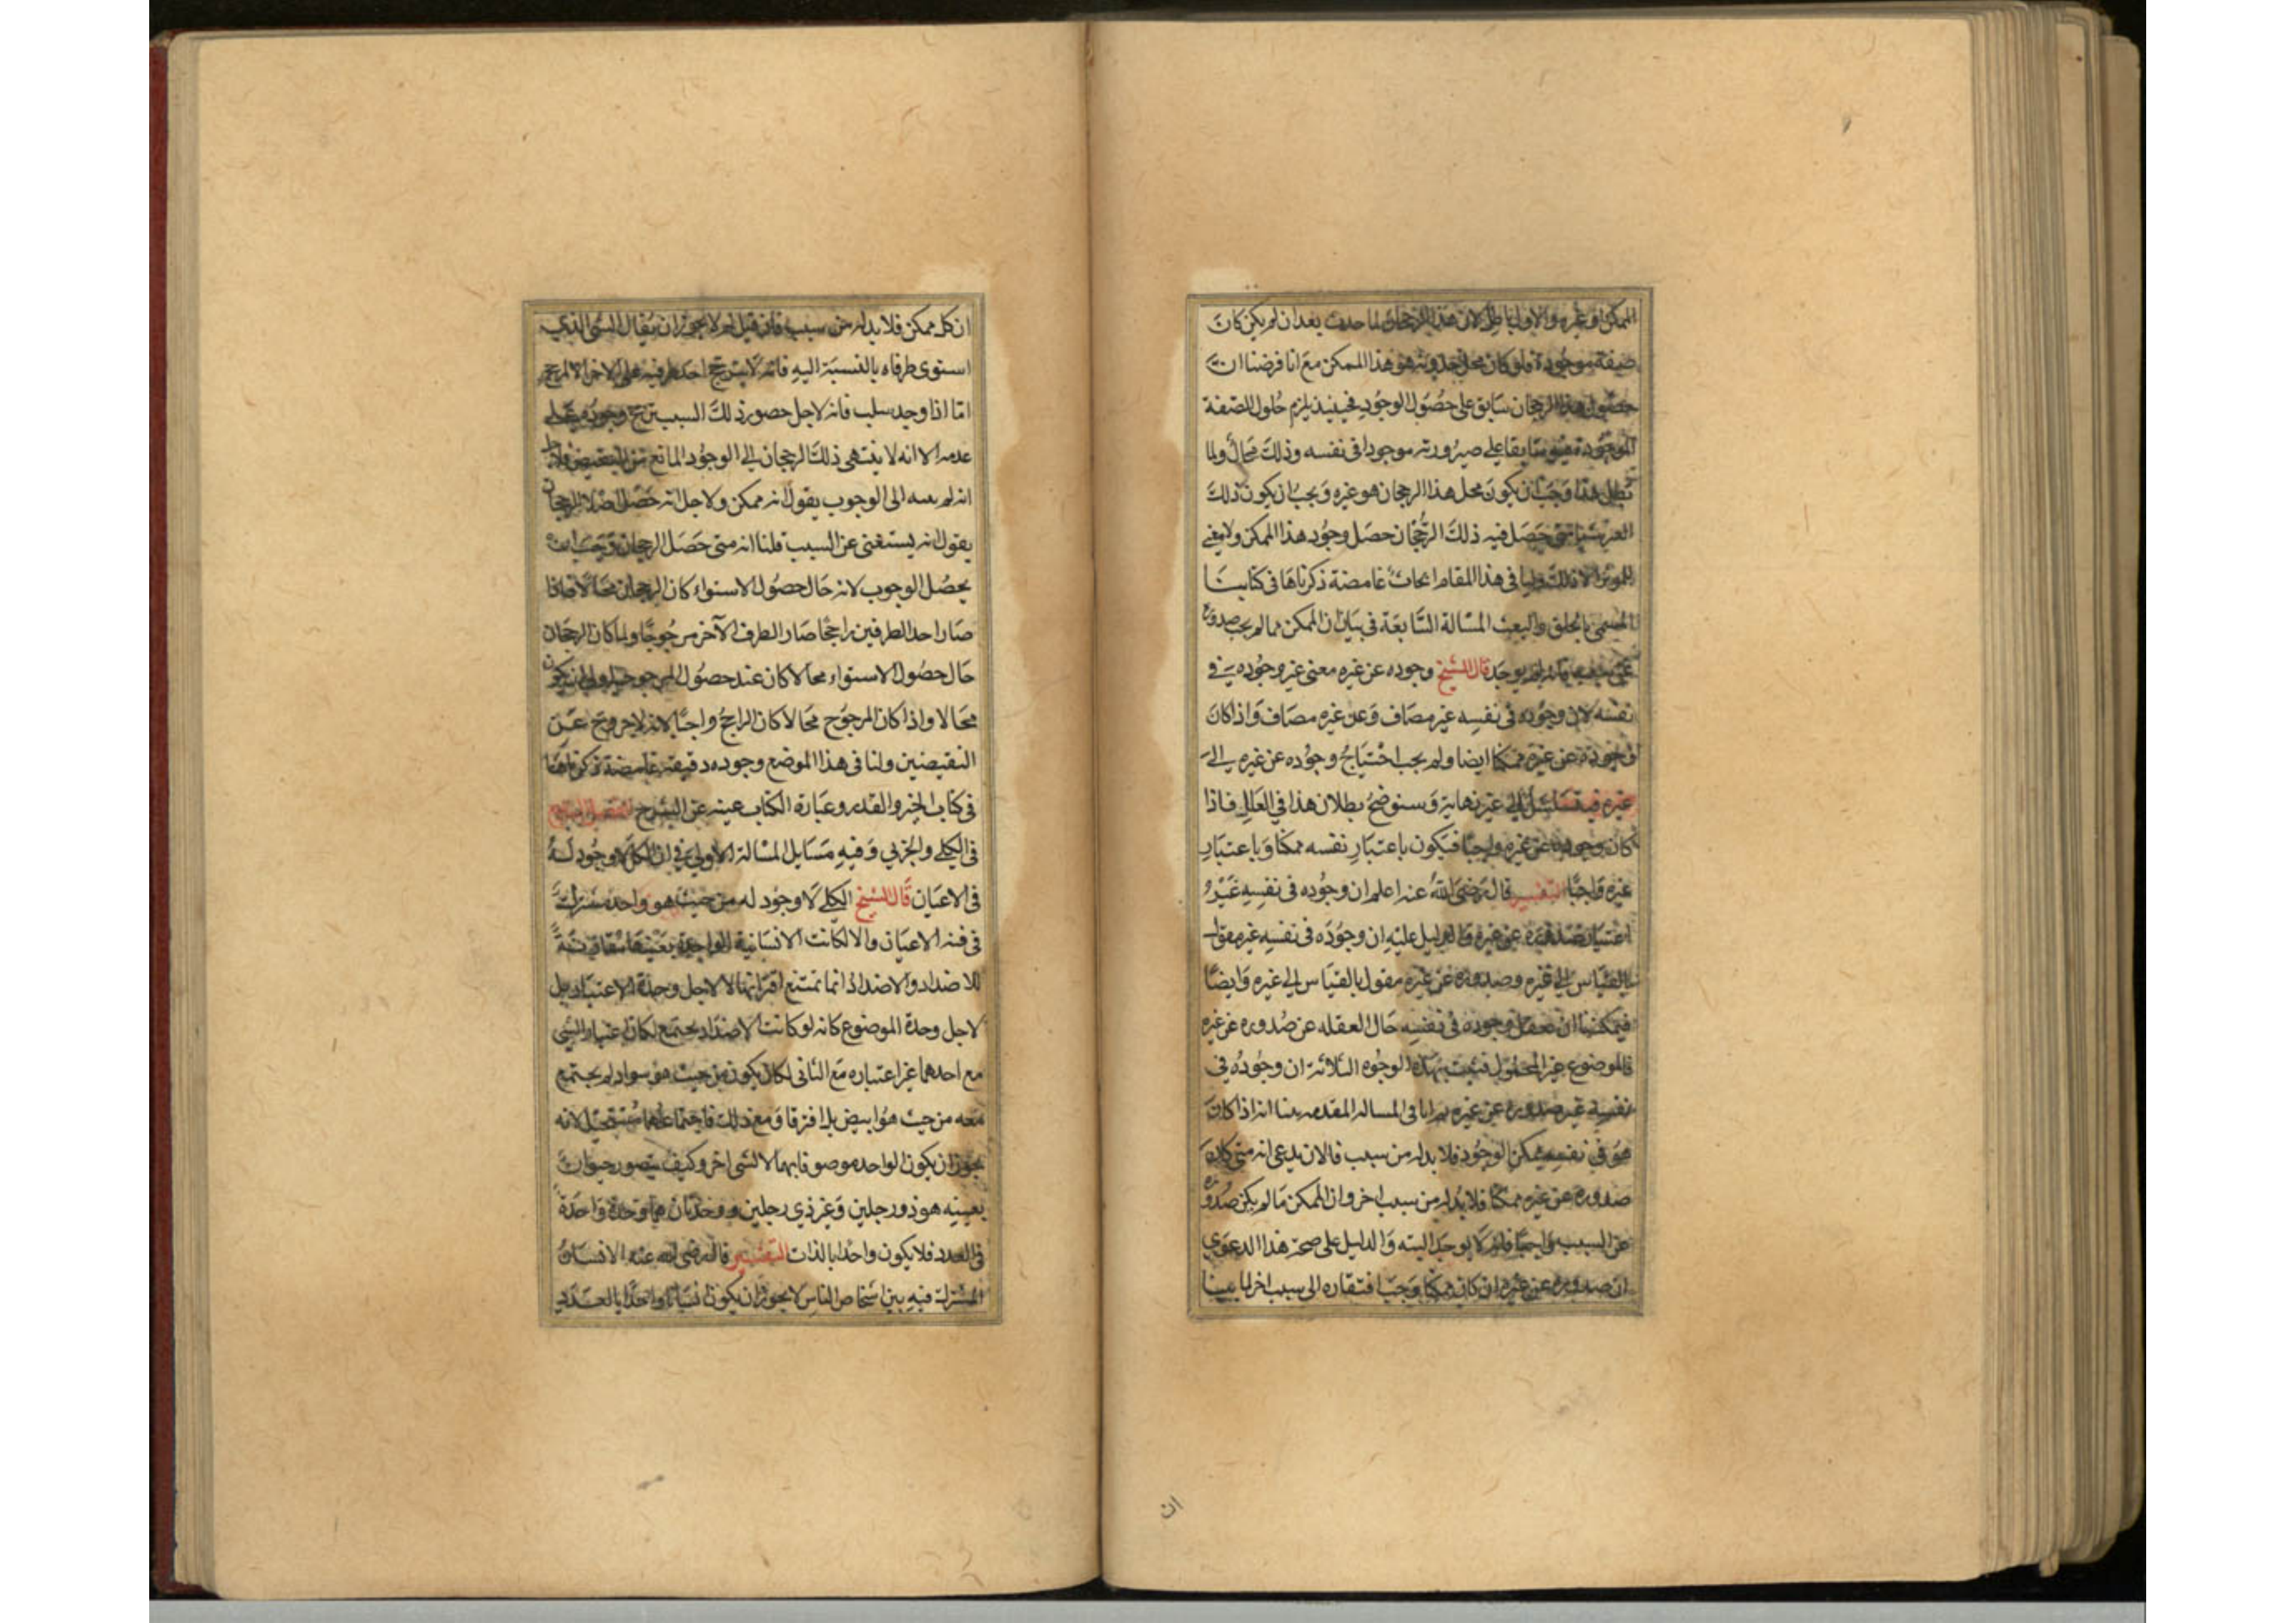 الممكن او غيره والاول باطل لان هذا الرجحان لما حدث بعد ان لم يكن كان
صفة موجودة فلو كان محل حدوثه هو هذا الممكن مع انا فرضنا ان
حصول هذا الرجحان سابق على حصول الوجود فحينئذ يلزم حلول الصفة
الموجودة سابقا على صيرورته موجودا فى نفسه وذلك محال ولما
بطل هذا وجب ان يكون محل هذا الرجحان هو غيره و يجب ان يكون ذلك
حصل فيه ذلك الرجحان حصل وجود هذا الممكن ولا معنى
للموثر الا ذلك ولنا فى هذا المقام ابحاث غامضة ذكرناها فى كتابنا
المسمى بالخلق والبعث المسالة السابعة فى بيان ان الممكن ما لم يجب صدوره
عن لم يوجد قال الشيخ وجوده عن غيره معنى غير وجوده فى
نفسه لان وجوده فى نفسه غير مضاف وعن غيره مضاف واذا كان
وجوده عن غيره ممكنا ايضا ولم يجب احتياج وجوده عن غيره الى
غيره فيتسلسل الى غير نهاية و سنوضح بطلان هذا فى العلل فاذا
كان وجوده عن غيره واجبا فيكون باعتبار نفسه ممكنا و باعتبار
غيره واجبا التفسير قال رضى الله عنه اعلم ان وجوده فى نفسه غير
اعتبار صدوره عن غيره والدليل عليه ان وجوده فى نفسه غير مقول
بالقياس الى غيره وصدوره عن غيره مقول بالقياس الى غيره وايضا
فيمكننا ان نعقل وجوده فى نفسه حال العقله عن صدوره عن غيره
فالموضوع غير المحمول فثبت بهذه الوجوه الثلاثة ان وجوده فى
نفسه غير صدوره عن غيره ثم انا فى المساله المقدمه بينا انه اذا كان
هو فى نفسه ممكن الوجود فلا بد له من سبب فالان ندعى انه متى كان
صدوره عن غيره ممكنا فلا بد له من سبب اخر وان الممكن ما لم يكن صدوره
عن السبب واجبا فانه لا يوجد البته والدليل على صحة هذا الدعوى
ان صدوره عن غيره ان كان ممكنا وجب افتقاره الى سبب اخر لما بينا
ان
ان كل ممكن فلا بد له من سبب فان قيل لم لا يجوز ان يقال الشى الذى
استوى طرفاه بالنسبة اليه فانه لا يترجح احد طرفيه على الاخر الا لمرجح
اما اذا وجد سبب فانه لاجل حضور ذلك السبب ترجح وجوده على
عدمه الا انه لا ينتهى ذلك الرجحان الى الوجود المانع من النقيض فلاجل
انه لم ينته الى الوجوب يقول انه ممكن ولاجل انه حصل اصل الرجحان
يقول انه يستغنى عن السبب قلنا انه متى حصل الرجحان وجب ان
يحصل الوجوب لانه حال حصول الاستواء كان الرجحان محالا فاذا
صار احد الطرفين راجحا صار الطرف الآخر مرجوحا ولما كان الرجحان
حال حصول الاستواء محالا كان عند حصول المرجوحية اولى ان يكون
محالا واذا كان المرجوح محالا كان الراجح واجبا لانه لا خروج عن
النقيضين ولنا فى هذا الموضع وجوده دقيقة غامضة ذكرناها
فى كتاب الجبر والقدر وعبارة الكتاب غنيه عن الشرح الفصل الرابع
فى الكلى والجزىي وفيه مسايل المسالة الاولى فى ان الكلى لا وجود له
فى الاعيان قال الشيخ الكلى لا وجود له من حيث هو واحد مشترك
فى فنه الاعيان والا لكانت الانسانية الواحدة بعينها مقارنة
للاضداد والاضداد انما تمتنع اقترانها لا لاجل وحدة الاعتبار بل
لاجل وحدة الموضوع كانه لو كانت الاضداد تجتمع لكان اعتبار الشى
مع احدهما غير اعتباره مع الثانى لكان يكون من حيث هو سواد لم يجتمع
معه من حيث هو ابيض بل افترقا و مع ذلك فاجتماعهما مستحيل لانه
يجوز ان يكون الواحد موصوفا بهما لا لشى اخر وكيف يتصور حيوان
بعينه هو ذو رجلين وغير ذى رجلين ووحدتان هما وحدة واحدة
فى العدد فلا يكون واحدا بالذات التفسير قال رضى الله عنه الانسان
المشترك فيه بين اشخاص الناس لا يجوز ان يكون انسانا واحدا بالعدد